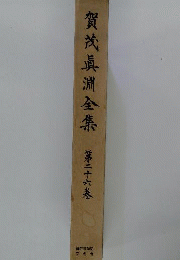 賀茂眞淵全集
第二十六巻